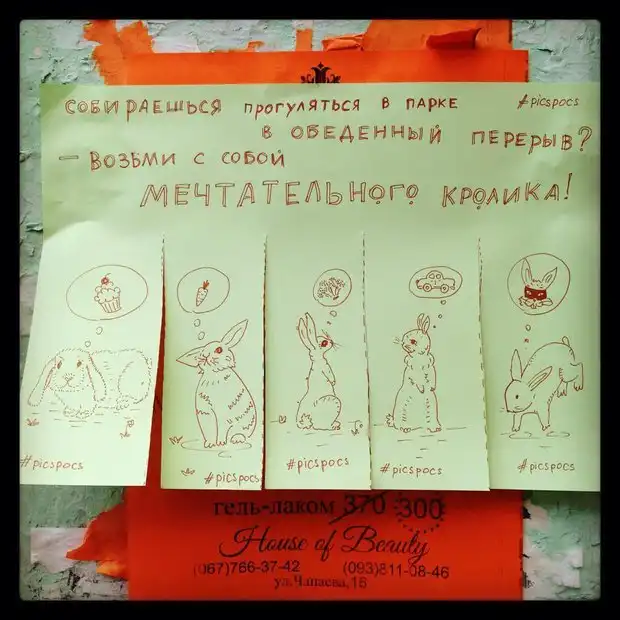 СОБИРАЕШЬСЯ ПРОГУЛЯТЬСЯ В ПАРКЕ #picspocs
В ОБЕДЕННЫЙ ПЕРЕРЫВ?
— ВОЗЬМИ С СОБОЙ
МЕЧТАТЕЛЬНОГО КРОЛИКА!
#picspocs #picspocs #picspocs #picspocs #picspocs
гель-лаком 370 300
House of Beauty
(067)766-37-42 (093)811-08-46
ул.Чапаева,16